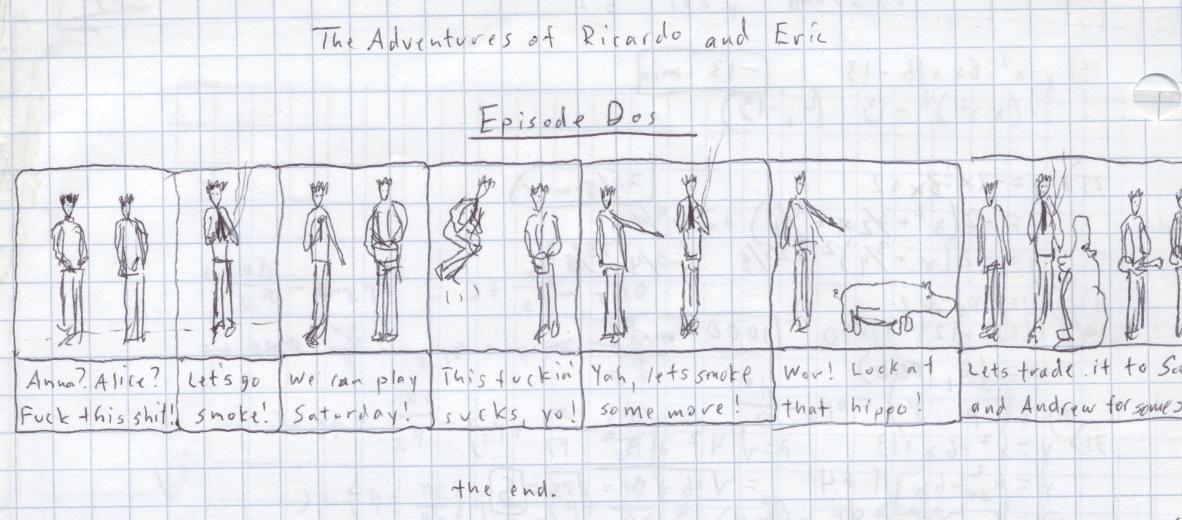 The Adventures of Ricardo and Eric
Episode Dos
Anna? Alice?
Fuck this shit!
Let's go
smoke!
We can play
Saturday!
This fuckin'
sucks, yo!
Yah, lets smoke
some more!
Wow! Look at
that hippo!
Lets trade it to
and Andrew for some
the end.